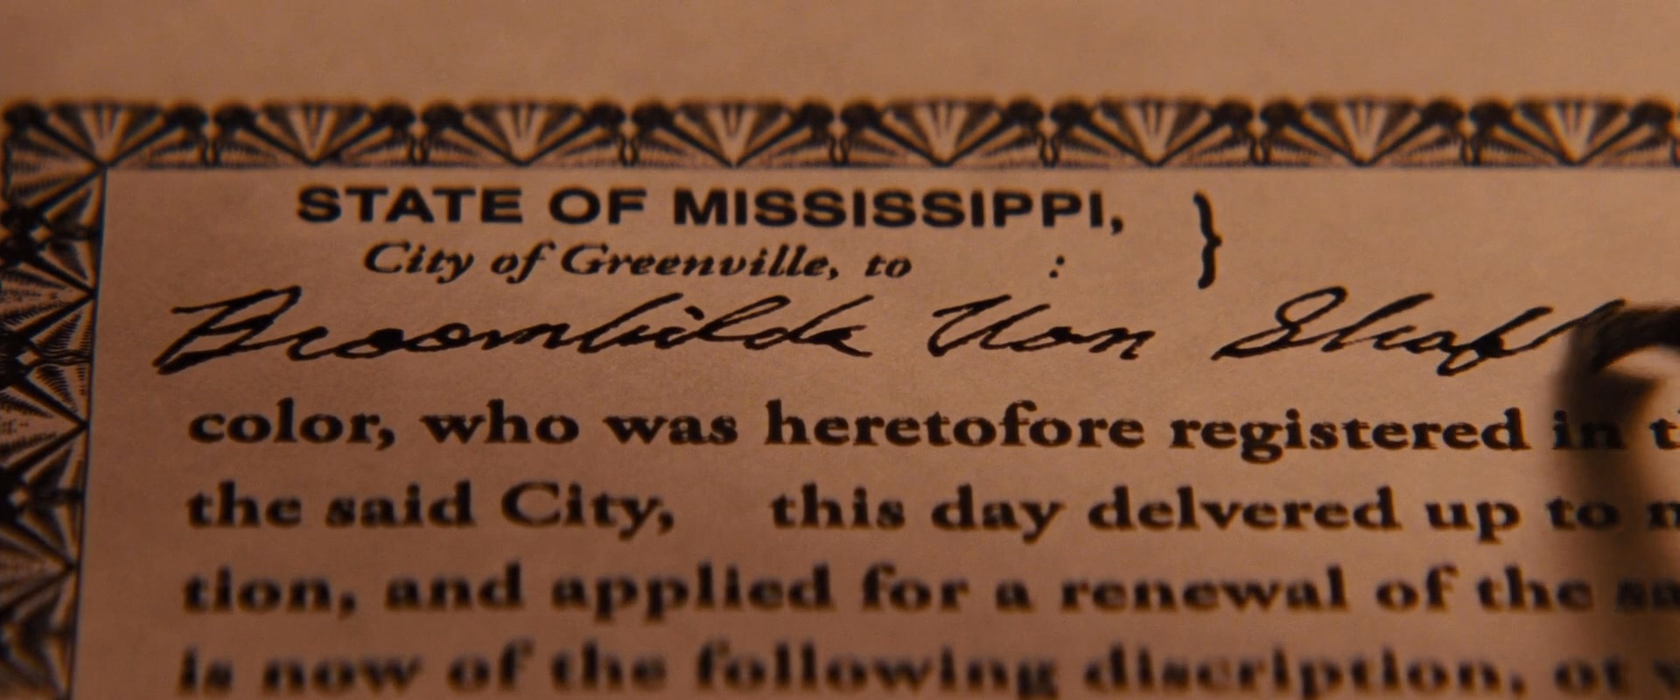 STATE OF MISSISSIPPI, }
City of Greenville, to :
Broomhilda Von Shaf
color, who was heretofore registered in t
the said City, this day delvered up to
tion, and applied for a renewal of the sa
is now of the following discription, ot